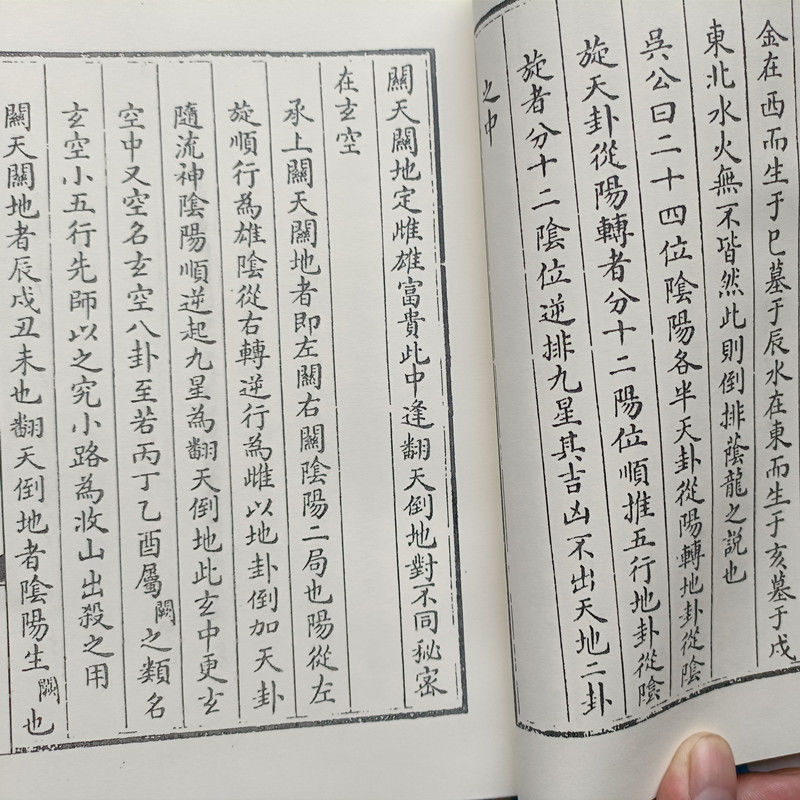 金在酉而生于巳墓于辰水在東而生于亥墓于戌
東北水火無不皆然此則倒排蔭龍之説也
吳公曰二十四位陰陽各半天卦從陽轉地卦從陰
旋天卦從陽轉者分十二陽位順推五行地卦從陰
旋者分十二陰位逆排九星其吉凶不出天地二卦
之中
關天關地定雌雄富貴此中逢翻天倒地對不同秘密
在玄空
承上關天關地者即左關右關陰陽二局也陽從左
旋順行為雄陰從右轉逆行為雌以地卦倒加天卦
隨流神陰陽順逆起九星為翻天倒地此玄中更玄
空中又空名玄空八卦至若丙丁乙酉屬闕之類名
玄空小五行先師以之究小路為收山出殺之用
關天關地者辰戌丑未也翻天倒地者陰陽生闕也